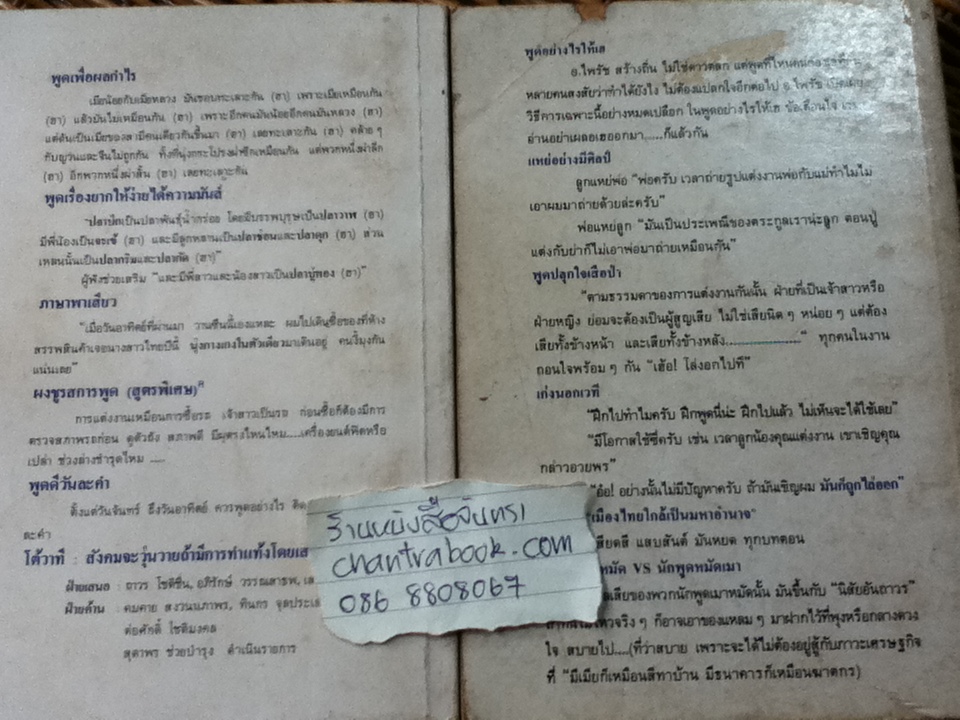 พูดเพื่อผลกำไร
เมียน้อยกับเมียหลวง มันชอบทะเลาะกัน (ฮา) เพราะเมียเหมือนกัน
(ฮา) แล้วมันไม่เหมือนกัน (ฮา) เพราะอีกคนมันน้อยอีกคนมันหลวง (ฮา)
แต่ดันเป็นเมียของสามีคนเดียวกันขึ้นมา (ฮา) เลยทะเลาะกัน (ฮา) คล้าย ๆ
กับญวนและจีนไม่ถูกกัน ทั้งที่นุ่งกระโปรงผ่าซีกเหมือนกัน แต่พวกหนึ่งผ่าลึก
(ฮา) อีกพวกหนึ่งผ่าตื้น (ฮา) เลยทะเลาะกัน
พูดเรื่องยากให้ง่ายได้ความมันส์
"ปลาบึกเป็นปลาพันธุ์น้ำกร่อย โดยมีบรรพบุรุษเป็นปลาวาฬ (ฮา)
มีพี่น้องเป็นจรเข้ (ฮา) และมีลูกหลานเป็นปลาช่อนและปลาดุก (ฮา) ส่วน
เหลนนั้นเป็นปลากริมและปลากัด (ฮา)"
ผู้ฟังช่วยเสริม "และมีพี่สาวและน้องสาวเป็นปลาบู่ทอง (ฮา)"
ภาษาพาเสียว
"เมื่อวันอาทิตย์ที่ผ่านมา วานซืนนี้เองแหละ ผมไปเดินซื้อของที่ห้าง
สรรพสินค้าเจอนางสาวไทยปีนี้ นุ่งกางเกงในตัวเดียวมาเดินอยู่ คนงี้มุงกัน
แน่นเลย"
ผงชูรสการพูด (สูตรพิเศษ)
การแต่งงานเหมือนการซื้อรถ เจ้าสาวเป็นรถ ก่อนซื้อก็ต้องมีการ
ตรวจสภาพรถก่อน ดูตัวถัง สภาพดี มีผุตรงไหนไหม.....เครื่องยนต์ฟิตหรือ
เปล่า ช่วงล่างชำรุดไหม .....
พูดดีวันละคำ
ตั้งแต่วันจันทร์ ถึงวันอาทิตย์ ควรพูดอย่างไร
ละคำ
โต้วาที : สังคมจะวุ่นวายถ้ามีการทำแท้งโดย
ฝ่ายเสนอ : ถาวร โชติชื่น, อภิรักษ์ วรรณสาธพ,
ฝ่ายค้าน : คมคาย สงวนนภาพร, ทินกร
ต่อศักดิ์ โชติมงคล
สุดาพร ช่วยบำรุง ดำเนินรายการ
พูดอย่างไรให้เฮ
อ.ไพรัช สร้างถิ่น ไม่ใช่ดาวตลก แต่พูดที่ไหนคน
หลายคนสงสัยว่าทำได้ยังไง ไม่ต้องแปลกใจอีกต่อไป อ.ไพรัช เปิดเผย
วิธีการเฉพาะนี้อย่างหมดเปลือก ในพูดอย่างไรให้เฮ ข้อเตือนใจ
อ่านอย่าเผลอเฮออกมา.....ก็แล้วกัน
แหย่อย่างมีศิลป์
ลูกแหย่พ่อ "พ่อครับ เวลาถ่ายรูปแต่งงานพ่อกับแม่ทำไมไม่
เอาผมมาถ่ายด้วยล่ะครับ"
พ่อแหย่ลูก "มันเป็นประเพณีของตระกูลเราน่ะลูก ตอนปู่
แต่งกับย่าก็ไม่เอาพ่อมาถ่ายเหมือนกัน"
พูดปลุกใจเสือป่า
"ตามธรรมดาของการแต่งงานกันนั้น ฝ่ายที่เป็นเจ้าสาวหรือ
ฝ่ายหญิง ย่อมจะต้องเป็นผู้สูญเสีย ไม่ใช่เสียนิด ๆ หน่อย ๆ แต่ต้อง
เสียทั้งข้างหน้า และเสียทั้งข้างหลัง...................." ทุกคนในงาน
ถอนใจพร้อม ๆ กัน "เฮ้อ! โล่งอกไปที"
เก่งนอกเวที
"ฝึกไปทำไมครับ ฝึกพูดนี่น่ะ ฝึกไปแล้ว ไม่เห็นจะได้ใช้เลย"
"มีโอกาสใช้ซี่ครับ เช่น เวลาลูกน้องคุณแต่งงาน เขาเชิญคุณ
กล่าวอวยพร"
"อ๋อ! อย่างนั้นไม่มีปัญหาครับ ถ้ามันเชิญผม มันก็ถูกไล่ออก"
เมืองไทยใกล้เป็นมหาอำนาจ"
เสียดสี แสบสันต์ มันหยด ทุกบทตอน
หมัด VS นักพูดหมัดเมา
เสียของพวกนักพูดเมาหมัดนั้น มันขึ้นกับ "นิสัยอันถาวร"
จริง ๆ ก็อาจเอาของแหลม ๆ มาฝากไว้ที่พุงหรือกลางดวง
ใจ สบายไป....(ที่ว่าสบาย เพราะจะได้ไม่ต้องอยู่สู้กับภาวะเศรษฐกิจ
ที่ "มีเมียก็เหมือนสีทาบ้าน มีธนาคารก็เหมือนฆาตกร)
ร้านหนังสือจันทรา
chantrabook.com
086 8808067